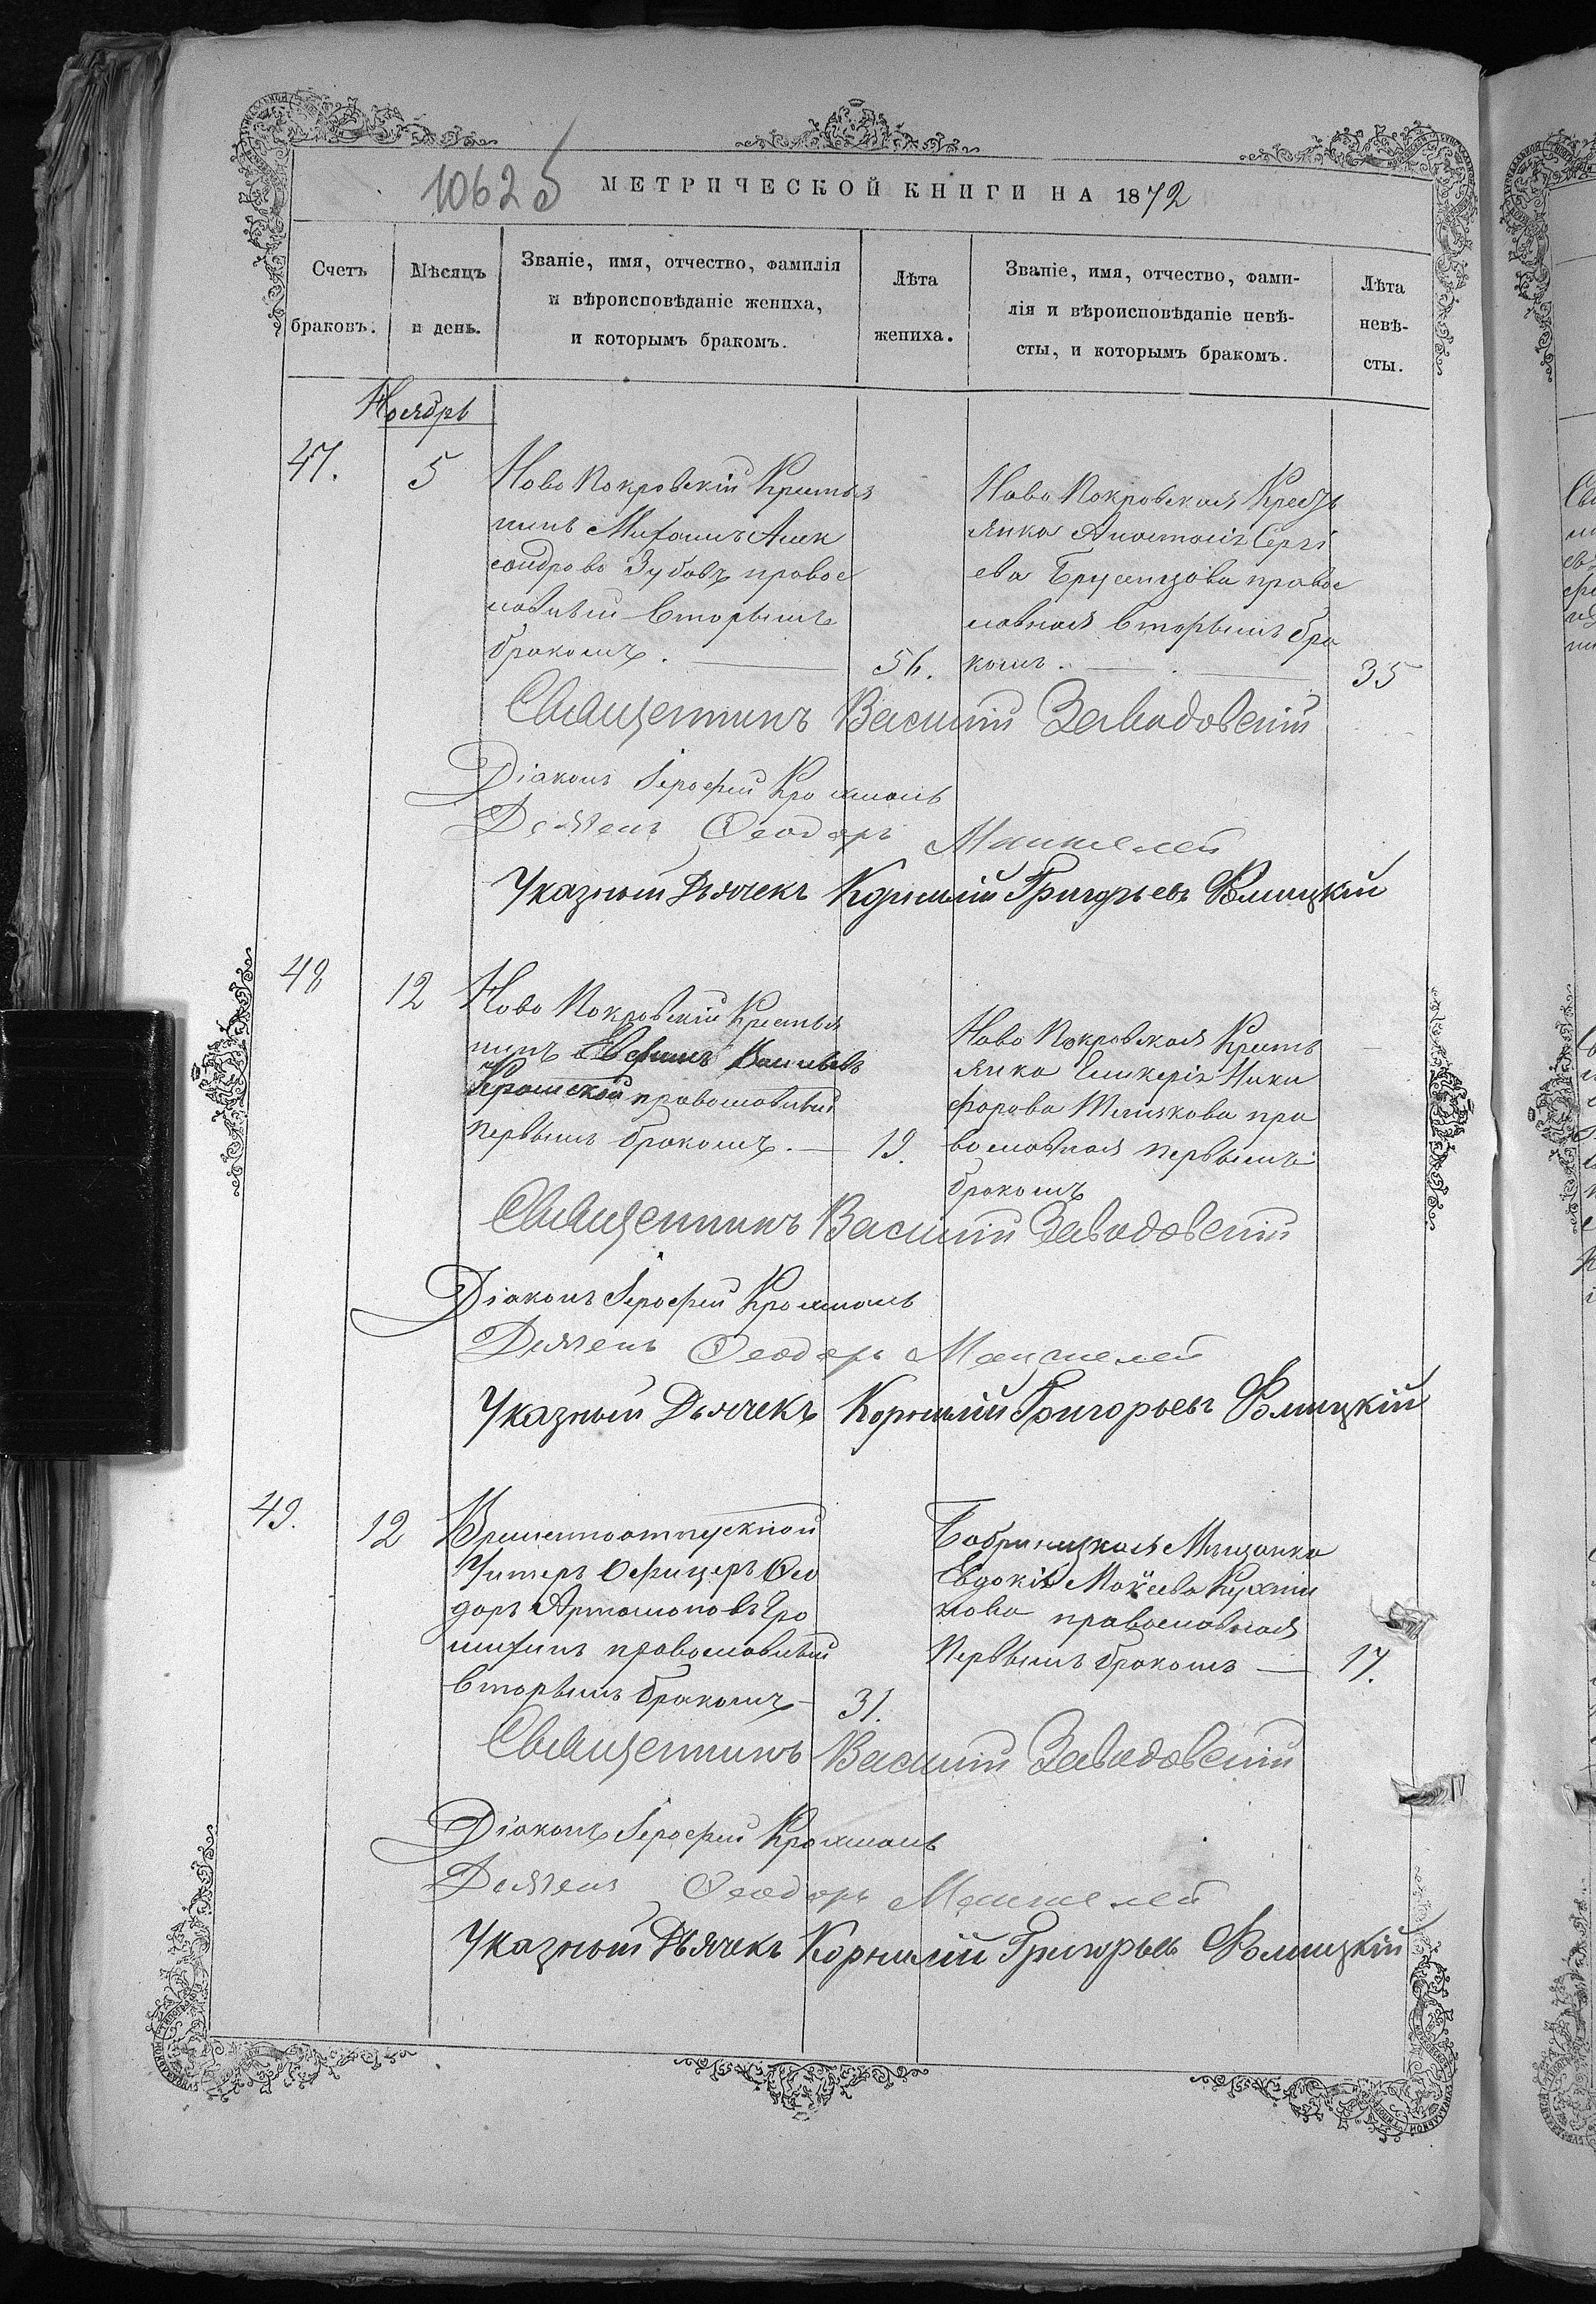 1062 б МЕТРИЧЕСКОЙ КНИГИ НА 1872
Счетъ
браковъ.
Мѣсяцъ
и день.
Званіе, имя, отчество, фамилія
и вѣроисповѣданіе жениха,
и которымъ бракомъ.
Лѣта
жениха.
Званіе, имя, отчество, фами-
лія и вѣроисповѣданіе невѣ-
сты, и которымъ бракомъ.
Лѣта
невѣ-
сты.
Ноябрь
47.
5
Ново Покровскій Крестья
нинъ Михаилъ Алек
сандровъ Зубовъ правос
лавный вторымъ
бракомъ.
56.
Ново Покровская Кресть
янка Анастасія Сергі
ева правос
лавная вторымъ бра
комъ.
35
Священникъ Василій Завадовскій
Діаконъ Іерофей
Дьячекъ Ѳеодоръ
Указный Дьячекъ Корнилій Григорьевъ
48
12
Ново Покровскій Крестья
нинъ Евфимъ Васильевъ
православный
первымъ бракомъ.
19.
Ново Покровская Кресть
янка Гликерія Ники
форова пра
вославная первымъ
бракомъ
Священникъ Василій Завадовскій
Діаконъ Іерофей
Дьячекъ Ѳеодоръ
Указный Дьячекъ Корнилій Григорьевъ
49.
12
Временноотпускной
Унтеръ Офицеръ Ѳео
доръ Артамоновъ
православный
вторымъ бракомъ
31.
Бобринецкая Мѣщанка
Евдокія Мокіева
православная
первымъ бракомъ
17.
Священникъ Василій Завадовскій
Діаконъ Іерофей
Дьячекъ Ѳеодоръ
Указный Дьячекъ Корнилій Григорьевъ